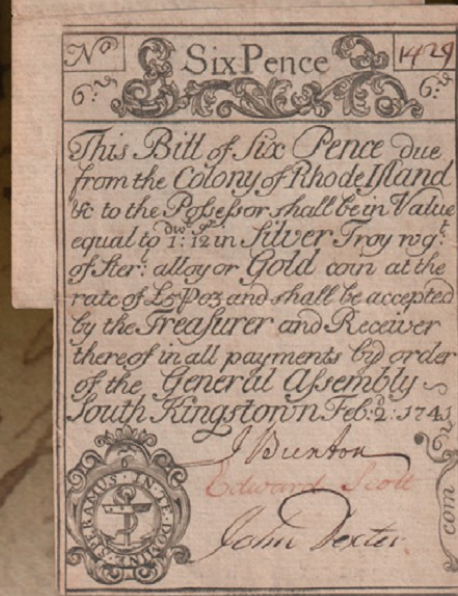 No SixPence 1429
6:d 6:d
This Bill of Six Pence due
from the Colony of Rhode Island
&c to the Possessor shall be in Value
dwt gr
equal to 1: 12 in Silver Troy wgt
of Ster: alloy or Gold coin at the
rate of
and shall be accepted
by the Treasurer and Receiver
thereof in all payments by order
of the General Assembly
South Kingstown Feb: 2d: 1741
J Bunton
Edward Scott
John Dexter
SPERAMUS · IN · TE · DOMINE
6d
com